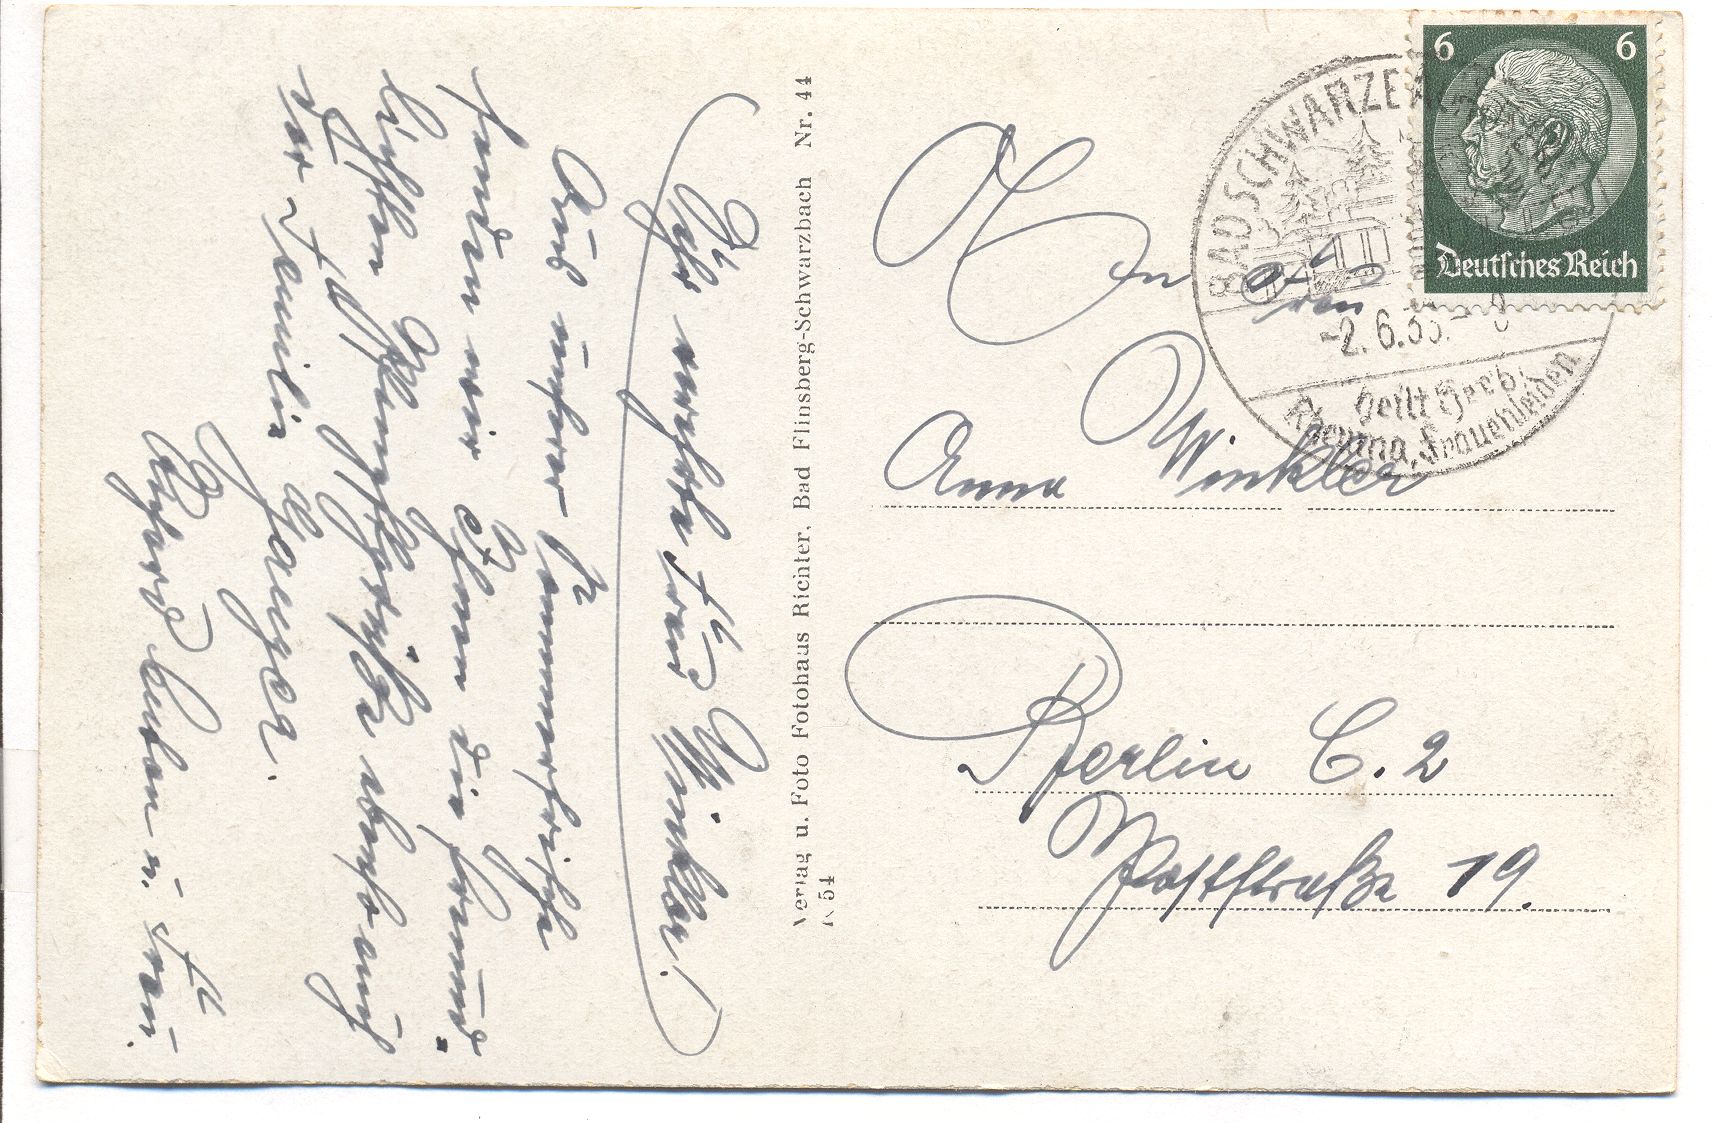 Sehr verehrte Frau Winkler!
Aus unserer Sommerfrische
senden wir Ihnen die freund-
lichsten Pfingstgrüße ebenso auch
der Familie Haugk
Gerhard Leuben u. Frau.
Verlag u. Foto Fotohaus Richter, Bad Flinsberg-Schwarzbach Nr. 44
K 54
6 6
Deutsches Reich
BAD SCHWARZB
-2.6.35.- 8
heilt Herz,
Rheuma, Frauenleiden
An Frau
Anna Winkler
Berlin C. 2
Poststraße 19.